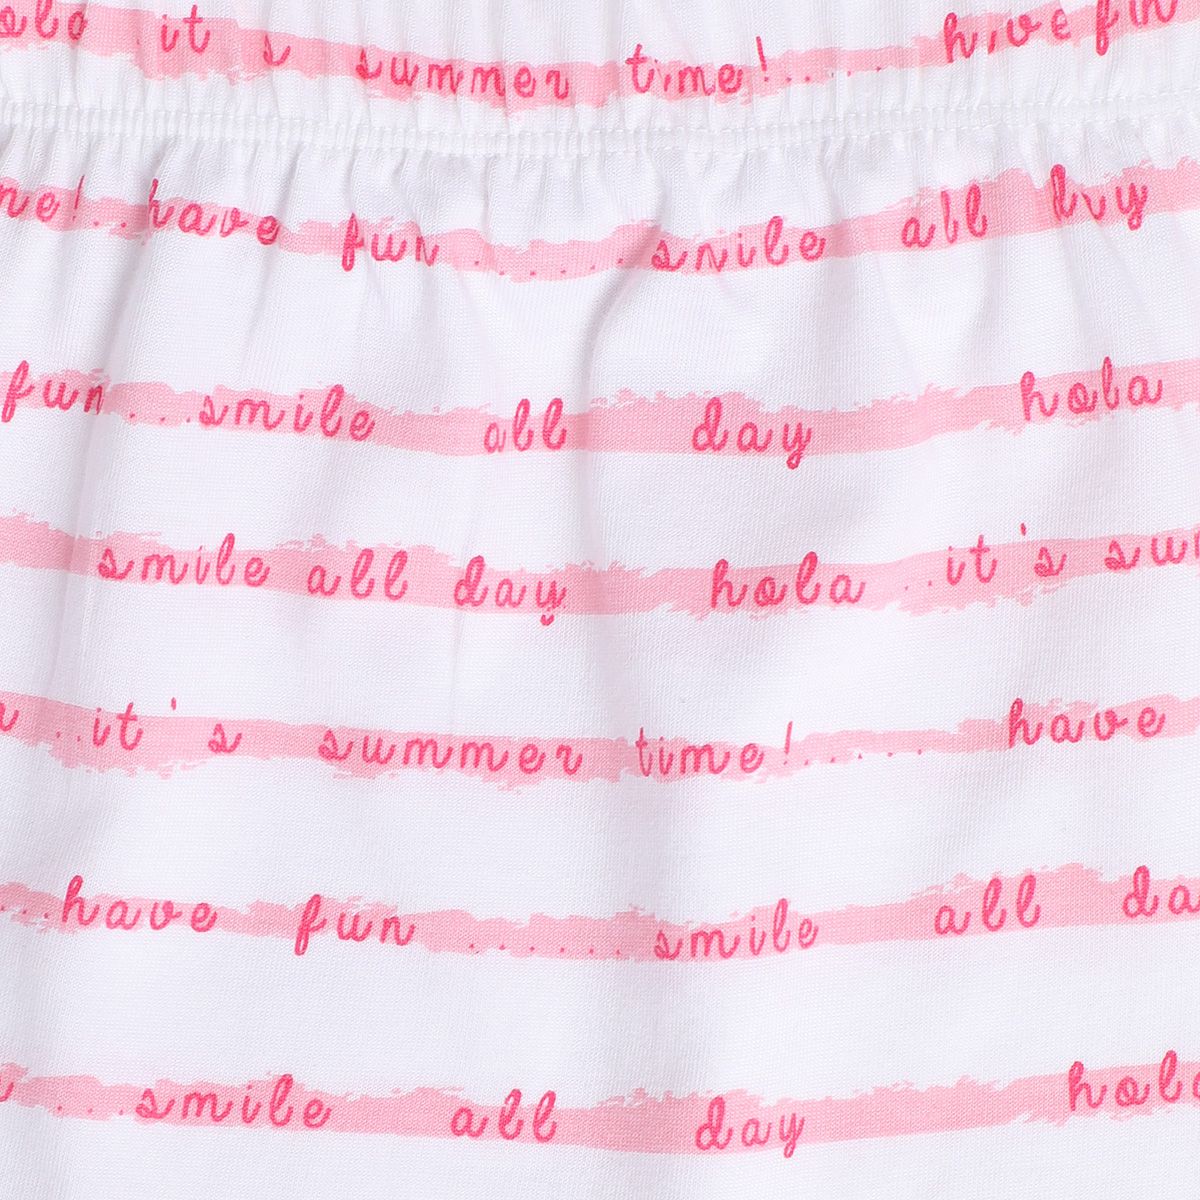 hola .it's summer time!...... have fun
me!..have fun .......smile all day
fun...smile all day hola
smile all day hola ..it's
..it's summer time!...... have
...have fun .......smile all
...smile all day